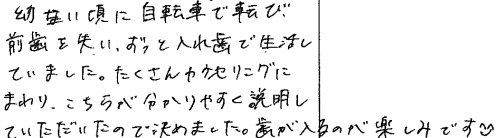 幼ない頃に自転車で転び、
前歯を失い、ずっと入れ歯で生活し
ていました。たくさんカウセリングに
まわり、こちらが分かりやすく説明し
ていただいたので決めました。歯が入るのが楽しみです